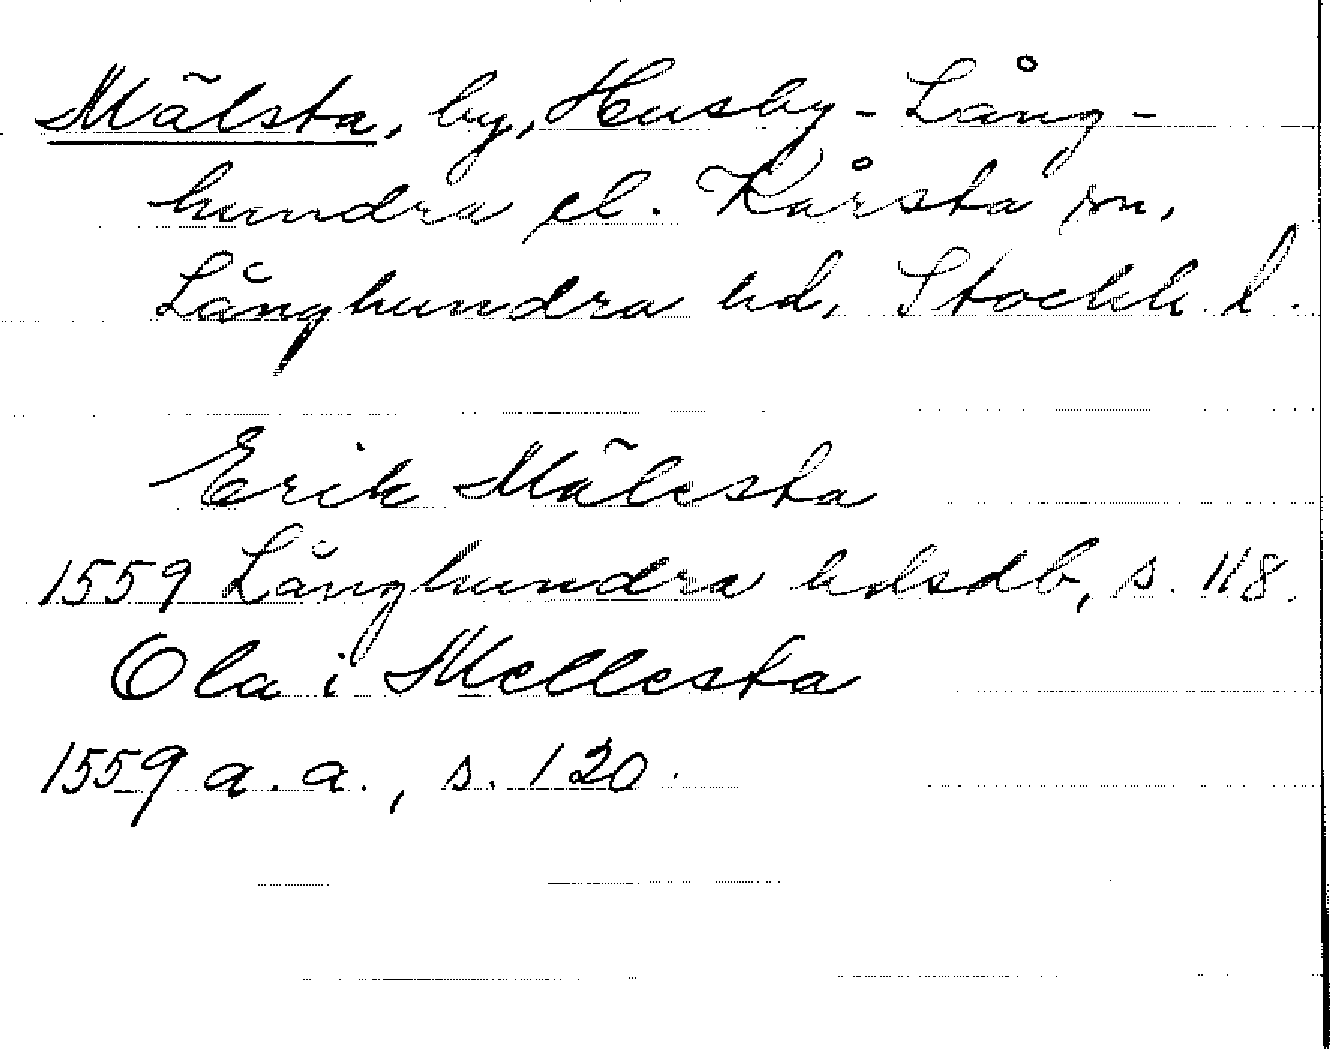 Mälsta, by, Husby-Lång-
hundra el. Kårsta sn,
Långhundra hd, Stockh. l.
Erik Mälesta
1559 Långhundra hdsdb, s. 118.
Ola i Mellesta
1559 a.a., s. 120.